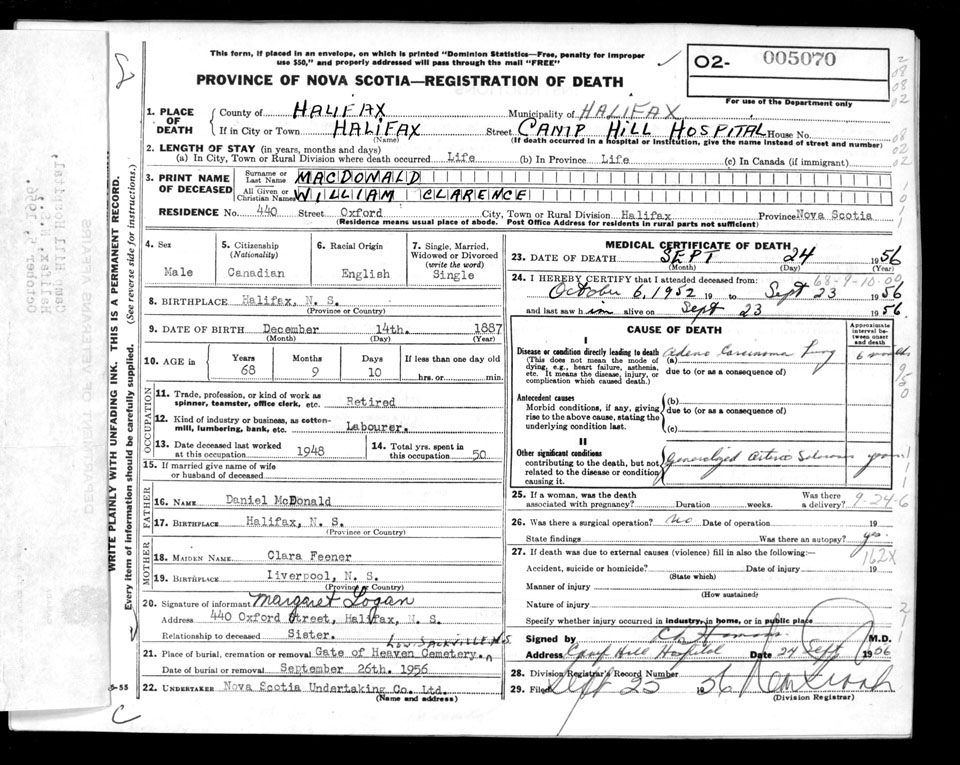 This form, if placed in an envelope, on which is printed "Dominion Statistics—Free, penalty for improper
use $50," and properly addressed will pass through the mail "FREE"
O2- 005070
For use of the Department only
PROVINCE OF NOVA SCOTIA—REGISTRATION OF DEATH
1. PLACE OF DEATH
County of HALIFAX Municipality of HALIFAX
If in City or Town HALIFAX Street CAMP HILL HOSPITAL House No.
(Name) (If death occurred in a hospital or institution, give the name instead of street and number)
2. LENGTH OF STAY (in years, months and days)
(a) In City, Town or Rural Division where death occurred Life (b) In Province Life (c) In Canada (if immigrant)
3. PRINT NAME OF DECEASED
Surname or Last Name MACDONALD
All Given or Christian Names WILLIAM CLARENCE
RESIDENCE No. 440 Street Oxford City, Town or Rural Division Halifax Province Nova Scotia
(Residence means usual place of abode. Post Office Address for residents in rural parts not sufficient)
4. Sex
Male
5. Citizenship (Nationality)
Canadian
6. Racial Origin
English
7. Single, Married, Widowed or Divorced (write the word)
Single
8. BIRTHPLACE Halifax, N. S.
(Province or Country)
9. DATE OF BIRTH December 14th. 1887
(Month) (Day) (Year)
10. AGE in Years Months Days If less than one day old
68 9 10 hrs. or min.
OCCUPATION
11. Trade, profession, or kind of work as spinner, teamster, office clerk, etc. Retired
12. Kind of industry or business, as cotton-mill, lumbering, bank, etc. Labourer.
13. Date deceased last worked at this occupation 1948
14. Total yrs. spent in this occupation 50
15. If married give name of wife or husband of deceased
FATHER
16. NAME Daniel McDonald
17. BIRTHPLACE Halifax, N. S.
(Province or Country)
MOTHER
18. MAIDEN NAME Clara Feener
19. BIRTHPLACE Liverpool, N. S.
(Province or Country)
20. Signature of informant Margaret Logan
Address 440 Oxford Street, Halifax, N. S.
Relationship to deceased Sister.
LOW. SACKVILLE N.S.
21. Place of burial, cremation or removal Gate of Heaven Cemetery.
Date of burial or removal September 26th. 1956
22. UNDERTAKER Nova Scotia Undertaking Co. Ltd.
(Name and address)
MEDICAL CERTIFICATE OF DEATH
23. DATE OF DEATH SEPT 24 1956
(Month) (Day) (Year)
24. I HEREBY CERTIFY that I attended deceased from:
68-9-10-00
October 6, 1952 19 to Sept 23 1956
and last saw him alive on Sept 23 1956
CAUSE OF DEATH
Approximate interval between onset and death
I
Disease or condition directly leading to death (a) Adeno Carcinoma Lung 6 months
(This does not mean the mode of dying, e.g., heart failure, asthenia, etc. It means the disease, injury, or complication which caused death.)
due to (or as a consequence of)
Antecedent causes
Morbid conditions, if any, giving rise to the above cause, stating the underlying condition last.
(b)
due to (or as a consequence of)
(c)
II
Other significant conditions
contributing to the death, but not related to the disease or condition causing it.
Generalized Arterio Sclerosis years
25. If a woman, was the death associated with pregnancy? Duration weeks. Was there a delivery?
9-24-6
26. Was there a surgical operation? no Date of operation 19
State findings Was there an autopsy? yes.
27. If death was due to external causes (violence) fill in also the following:—
162X
Accident, suicide or homicide? Date of injury 19
(State which)
Manner of injury
(How sustained)
Nature of injury
Specify whether injury occurred in industry, in home, or in public place
Signed by M.D.
Address Camp Hill Hospital Date 24 Sept 1956
28. Division Registrar's Record Number
29. Filed Sept 25 1956
(Division Registrar)
WRITE PLAINLY WITH UNFADING INK. THIS IS A PERMANENT RECORD.
Every item of information should be carefully supplied. (See reverse side for instructions.)
Camp Hill Hospital,
Halifax, N.S.,
October 4, 1966.
5-55